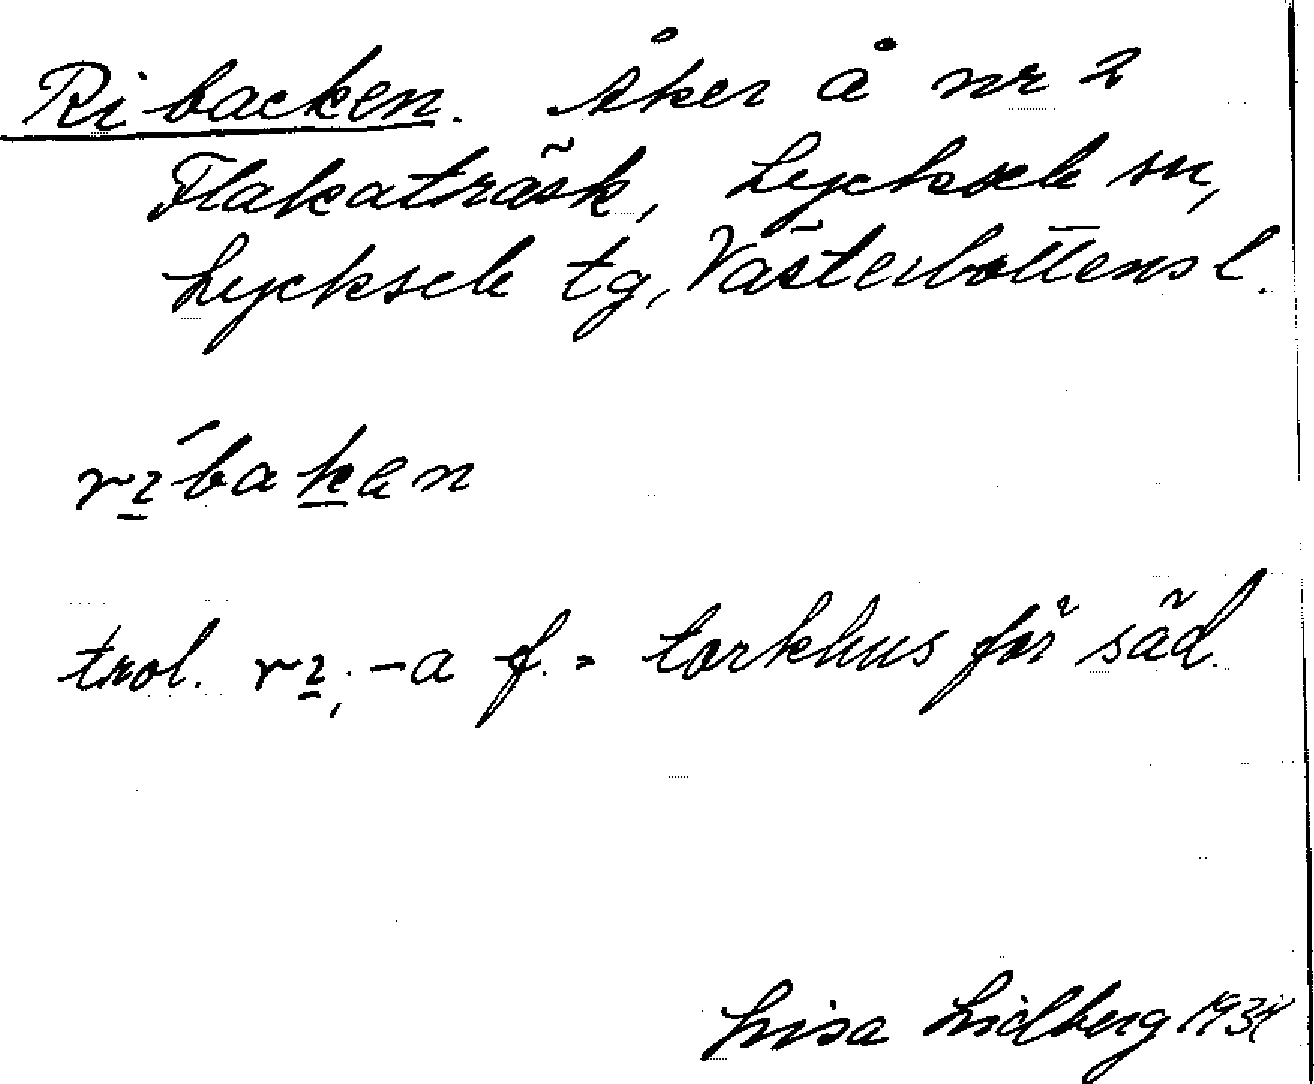 Ribacken. Åker å nr 2
Flakaträsk, Lycksele sn,
Lycksele tg, Västerbottens l.
rı̱́bak̲an
trol. rı̱; -a f. = torkhus för säd.
Lisa Lidberg